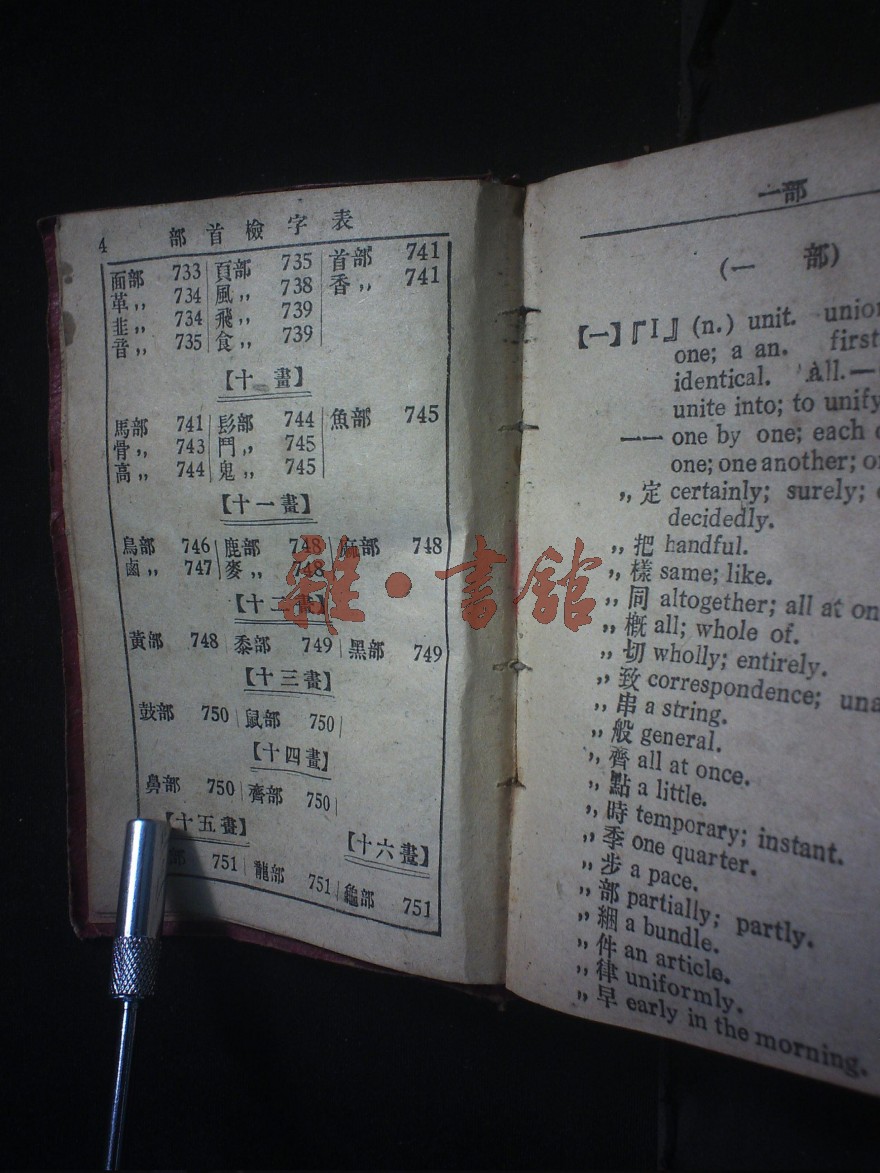 4 部首檢字表
面部 733 頁部 735 首部 741
革 ,, 734 風 ,, 738 香 ,, 741
韭 ,, 734 飛 ,, 739
音 ,, 735 食 ,, 739
【十 畫】
馬部 741 髟部 744 魚部 745
骨 ,, 743 鬥 ,, 745
高 ,, 744 鬼 ,, 745
【十一畫】
鳥部 746 鹿部 748 麻部 748
鹵 ,, 747 麥 ,, 748
【十二畫】
黃部 748 黍部 749 黑部 749
【十三畫】
鼓部 750 鼠部 750
【十四畫】
鼻部 750 齊部 750
【十五畫】 【十六畫】
部 751 龍部 751 龜部 751
雜·書館
一部
(一 部)
【一】『I』 (n.) unit. union
one; a an. first
identical. All.—
unite into; to unify
一一 one by one; each
one; one another;
,, 定 certainly; surely;
decidedly.
,, 把 handful.
,, 樣 same; like.
,, 同 altogether; all at on
,, 概 all; whole of.
,, 切 wholly; entirely.
,, 致 correspondence; una
,, 串 a string.
,, 般 general.
,, 齊 all at once.
,, 點 a little.
,, 時 temporary; instant.
,, 季 one quarter.
,, 步 a pace.
,, 部 partially; partly.
,, 綑 a bundle.
,, 件 an article.
,, 律 uniformly.
,, 早 early in the morning.